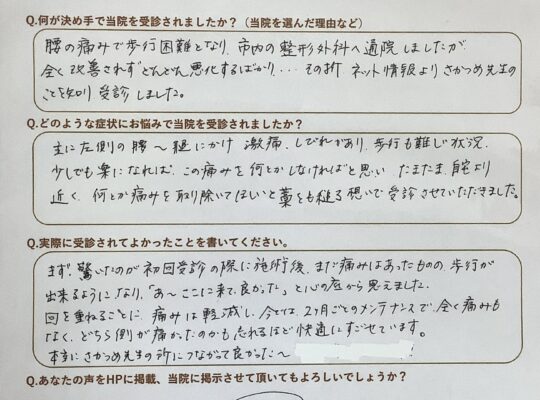 Q.何が決め手で当院を受診されましたか？（当院を選んだ理由など）
腰の痛みで歩行困難となり、市内の整形外科へ通院しましたが
全く改善されずどんどん悪化するばかり・・・その折 ネット情報よりさかつめ先生の
ことを知り 受診しました。
Q.どのような症状にお悩みで当院を受診されましたか？
主に左側の腰〜腿にかけ 激痛、しびれがあり、歩行も難しい状況、
少しでも楽になれば、この痛みを何とかしなければと思い たまたま、自宅より
近く、何とか痛みを取り除いてほしいと藁をも縋る想いで受診させていただきました。
Q.実際に受診されてよかったことを書いてください。
まず、驚いたのが初回受診の際に施術後、まだ痛みはあったものの、歩行が
出来るようになり、「あ〜ここに来て、良かった」と心の底から思えました。
回を重ねるごとに、痛みは軽減し、今では、2ヶ月ごとのメンテナンスで、全く痛みも
なく、どちら側が痛かったのかも忘れるほど快適にすごせています。
本当にさかつめ先生の所につながって良かった〜
Q.あなたの声をHPに掲載、当院に掲示させて頂いてもよろしいでしょうか？